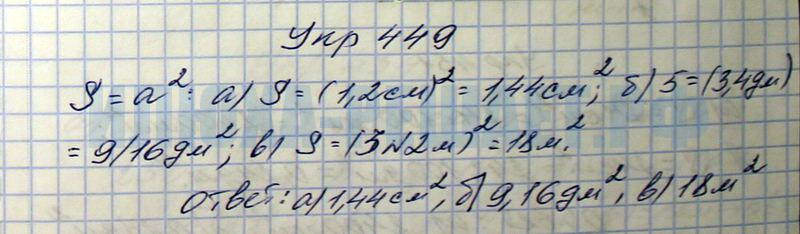 Упр 449
S = a²: а) S = (1,2см)² = 1,44см²; б) S = (3,4дм)
= 9/16дм²; в) S = (3√2м)² = 18м.²
Ответ: а) 1,44см², б) 9,16дм², в) 18м²